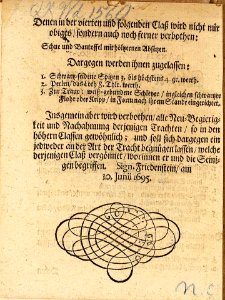 Denen in der vierten und folgenden Claß wird nicht nur
obiges / sondern auch noch ferner verbothen:
Schue und Pantoffel mit höltzernen Absätzen.
Dargegen werden ihnen zugelassen:
1. Schwartz-seidine Spitzen z. biß höchstens 4. gr. werth.
2. Perlen / das Loth z. Thlr. werth.
3. Zur Trauer / weiß-gebundene Schleyer / ingleichen schwartzer
Flohr oder Kripp / in Form nach ihrem Stande eingerichtet.
Insgemein aber wird verbothen / alle Neu-Begierig-
keit und Nachahmung derjenigen Trachten / so in den
höhern Classen gewöhnlich; und soll sich dargegen ein
jedweder an der Art der Tracht begnügen lassen / welche
derjenigen Claß vergönnet / worinnen er und die Seini-
gen begriffen. Sign. Friedenstein / am
20. Junii 1695.